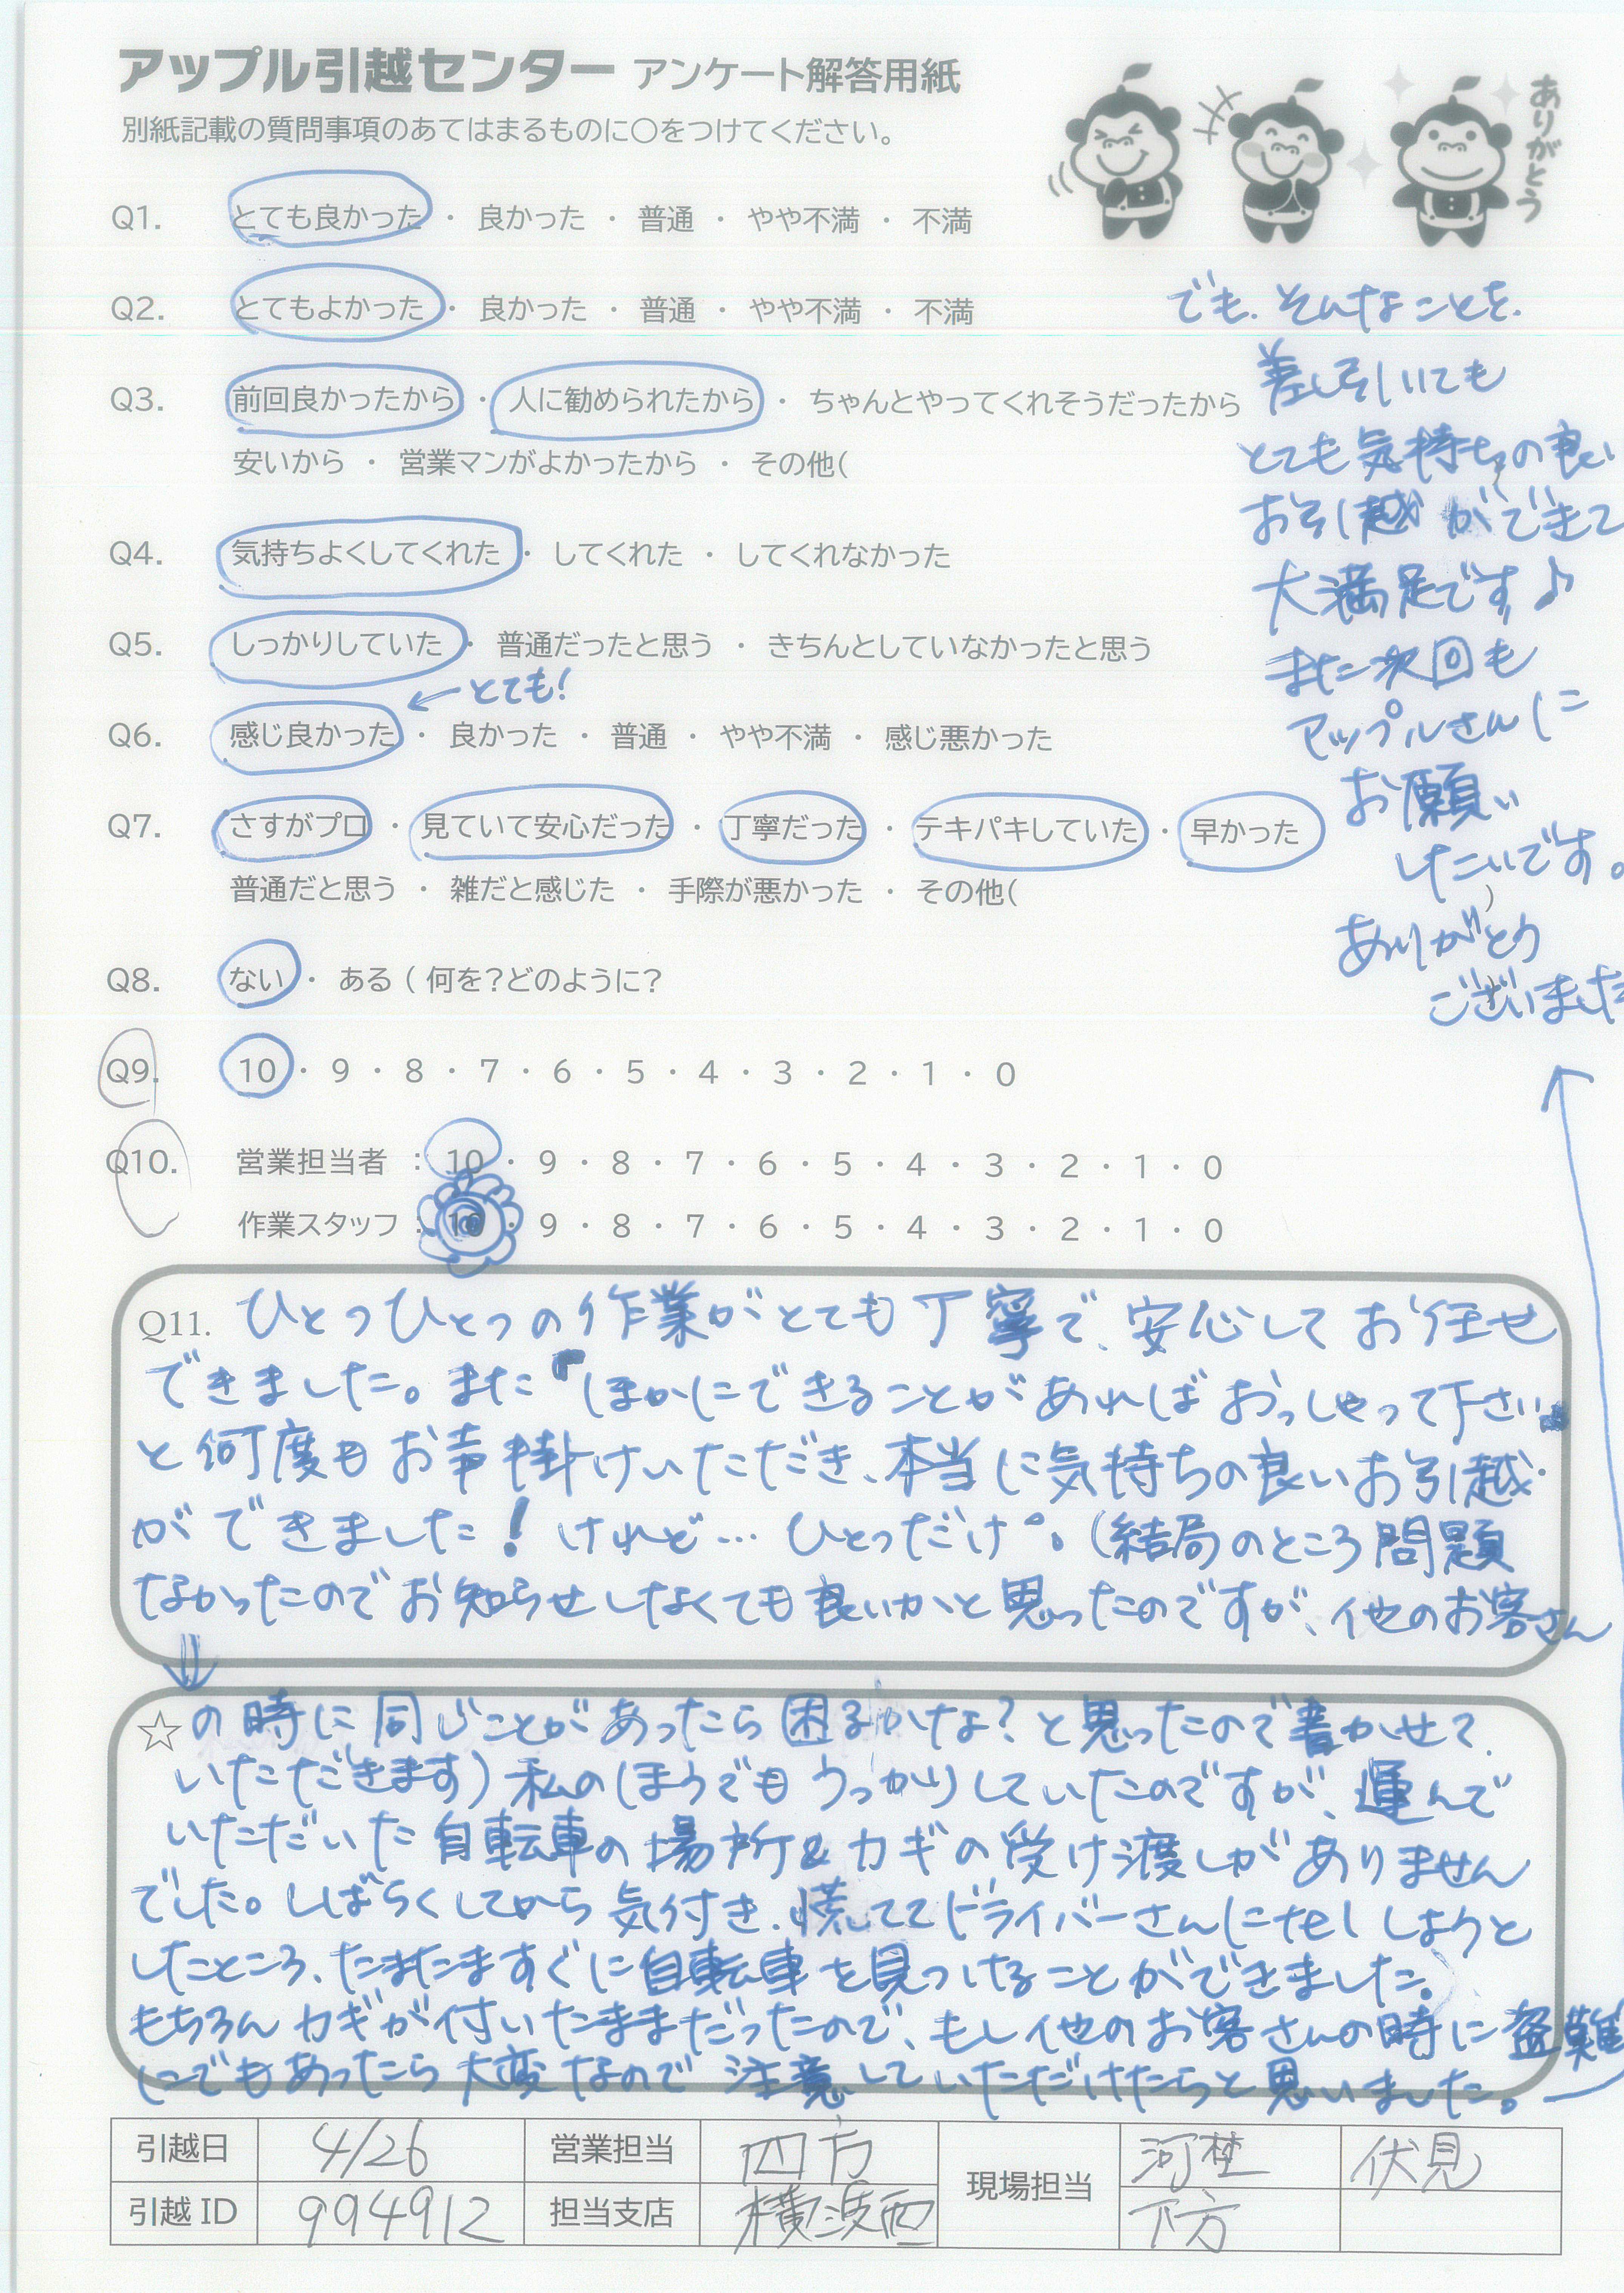 アップル引越センター アンケート解答用紙
別紙記載の質問事項のあてはまるものに○をつけてください。
ありがとう
Q1. とても良かった ・ 良かった ・ 普通 ・ やや不満 ・ 不満
Q2. とてもよかった ・ 良かった ・ 普通 ・ やや不満 ・ 不満
Q3. 前回良かったから ・ 人に勧められたから ・ ちゃんとやってくれそうだったから
安いから ・ 営業マンがよかったから ・ その他( )
Q4. 気持ちよくしてくれた ・ してくれた ・ してくれなかった
Q5. しっかりしていた ・ 普通だったと思う ・ きちんとしていなかったと思う
←とても!
Q6. 感じ良かった ・ 良かった ・ 普通 ・ やや不満 ・ 感じ悪かった
Q7. さすがプロ ・ 見ていて安心だった ・ 丁寧だった ・ テキパキしていた ・ 早かった
普通だと思う ・ 雑だと感じた ・ 手際が悪かった ・ その他( )
Q8. ない ・ ある ( 何を?どのように? )
Q9. 10 ・ 9 ・ 8 ・ 7 ・ 6 ・ 5 ・ 4 ・ 3 ・ 2 ・ 1 ・ 0
Q10. 営業担当者 : 10 ・ 9 ・ 8 ・ 7 ・ 6 ・ 5 ・ 4 ・ 3 ・ 2 ・ 1 ・ 0
作業スタッフ : 10 ・ 9 ・ 8 ・ 7 ・ 6 ・ 5 ・ 4 ・ 3 ・ 2 ・ 1 ・ 0
Q11. ひとつひとつの作業がとても丁寧で、安心してお任せ
できました。また「ほかにできることがあればおっしゃって下さい」
と何度もお声掛けいただき、本当に気持ちの良いお引越
ができました!けれど…ひとつだけ。(結局のところ問題
なかったのでお知らせしなくても良いかと思ったのですが、他のお客さん
☆の時に同じことがあったら困るかな?と思ったので書かせて
いただきます)私のほうでもうっかりしていたのですが、運んで
いただいた自転車の場所&カギの受け渡しがありません
でした。しばらくしてから気付き、慌ててドライバーさんにtelしようと
したところ、たまたますぐに自転車を見つけることができました。
もちろんカギが付いたままだったので、もし他のお客さんの時に盗難
にでもあったら大変なので注意していただけたらと思いました。
でも、そんなことを
差し引いても
とても気持ちの良い
お引越ができて
大満足です♪
また次回も
アップルさんに
お願い
したいです。
ありがとう
ございました
引越日 4/26 営業担当 四方 現場担当 河埜 伏見
引越ID 994912 担当支店 横浜西 下方